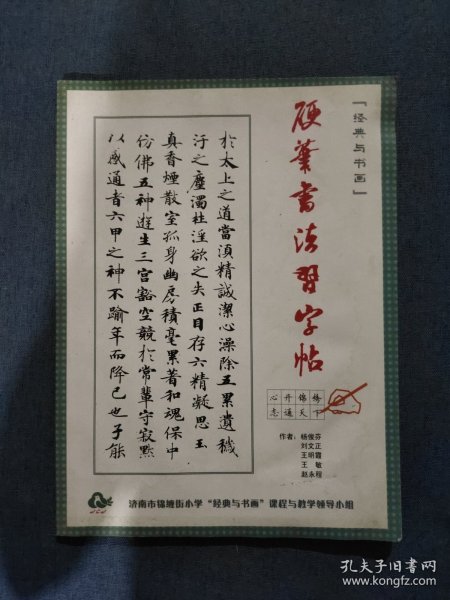 「经典与书画」
硬筆書法習字帖
於太上之道當須精誠潔心澡除五累遺穢
汙之塵濁杜淫欲之失正目存六精凝思玉
真香煙散室孤身幽房積毫累著和魂保中
仿佛五神遊生三宮豁空競於常輩守寂默
以感通者六甲之神不踰年而降己也子能
心开锦绣
志通天下
作者：杨俊芬
刘文正
王明霞
王敏
赵永程
济南市锦缠街小学“经典与书画”课程与教学领导小组
孔夫子旧书网
www.kongfz.com